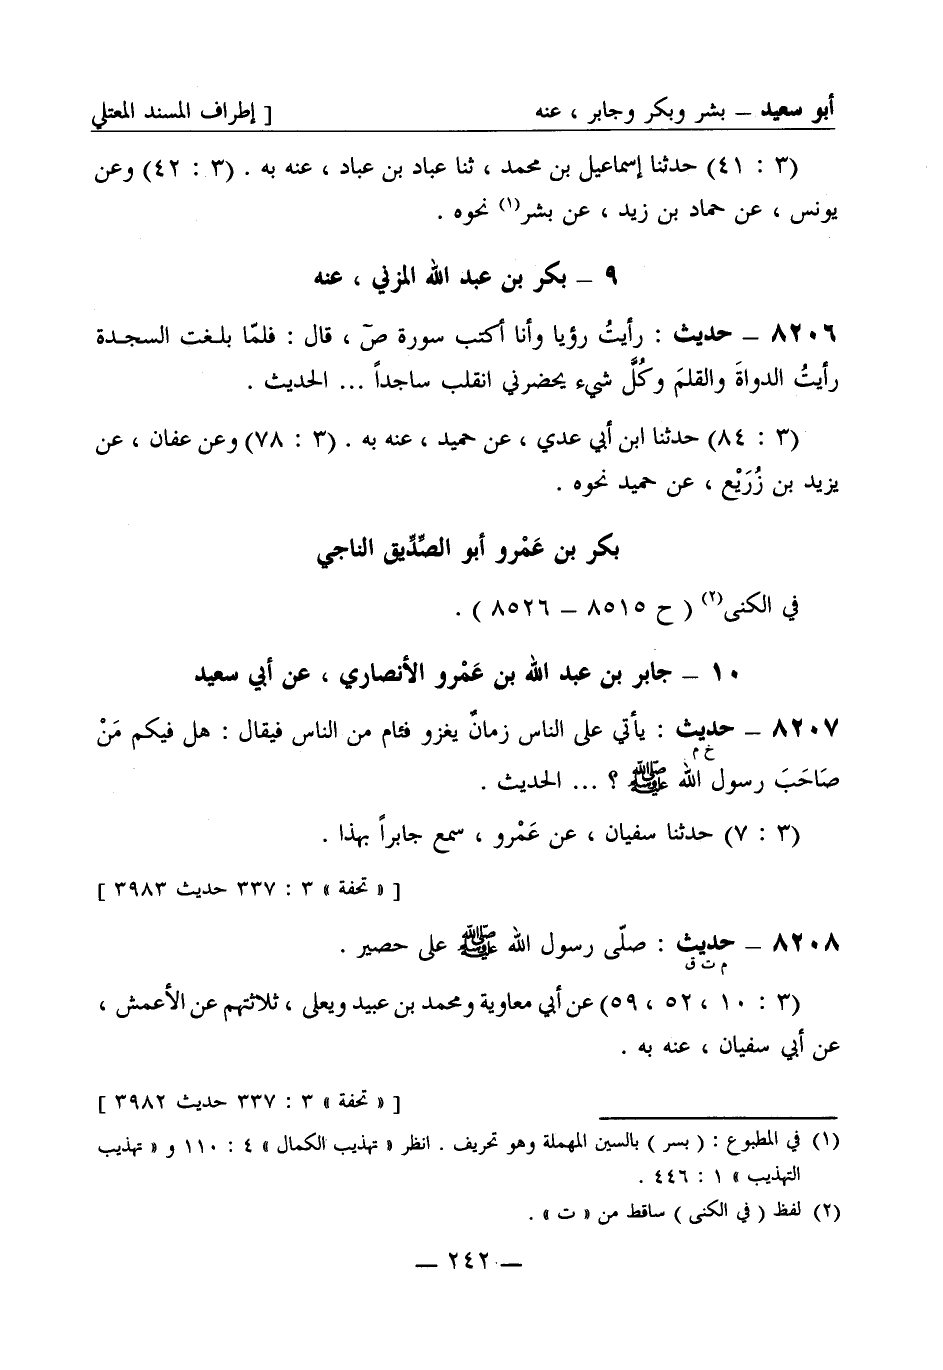 أبو سعيد – بشر وبكر وجابر ، عنه [ إطراف المسند المعتلي
(٣ : ٤١) حدثنا إسماعيل بن محمد ، ثنا عباد بن عباد ، عنه به . (٣ : ٤٢) وعن
يونس ، عن حماد بن زيد ، عن بشر(١) نحوه .
٩ – بكر بن عبد الله المزني ، عنه
٨٢٠٦ – حديث : رأيتُ رؤيا وأنا أكتب سورة صٓ ، قال : فلمّا بلغت السجدة
رأيتُ الدواةَ والقلمَ وكُلَّ شيء يحضرني انقلب ساجداً ... الحديث .
(٣ : ٨٤) حدثنا ابن أبي عدي ، عن حميد ، عنه به . (٣ : ٧٨) وعن عفان ، عن
يزيد بن زُرَيْع ، عن حميد نحوه .
بكر بن عَمْرو أبو الصِّدِّيق الناجي
في الكنى(٢) ( ح ٨٥١٥ – ٨٥٢٦ ) .
١٠ – جابر بن عبد الله بن عَمْرو الأنصاري ، عن أبي سعيد
٨٢٠٧ – حديث : يأتي على الناس زمانٌ يغزو فئام من الناس فيقال : هل فيكم مَنْ
خ م
صَاحَبَ رسول الله ﷺ ؟ ... الحديث .
(٣ : ٧) حدثنا سفيان ، عن عَمْرو ، سمع جابراً بهذا .
[ « تحفة » ٣ : ٣٣٧ حديث ٣٩٨٣ ]
٨٢٠٨ – حديث : صلّى رسول الله ﷺ على حصير .
م ت ق
(٣ : ١٠ ، ٥٢ ، ٥٩) عن أبي معاوية ومحمد بن عبيد ويعلى ، ثلاثتهم عن الأعمش ،
عن أبي سفيان ، عنه به .
[ « تحفة » ٣ : ٣٣٧ حديث ٣٩٨٢ ]
(١) في المطبوع : ( بسر ) بالسين المهملة وهو تحريف . انظر « تهذيب الكمال » ٤ : ١١٠ و « تهذيب
التهذيب » ١ : ٤٤٦ .
(٢) لفظ ( في الكنى ) ساقط من « ت » .
— ٢٤٢ —